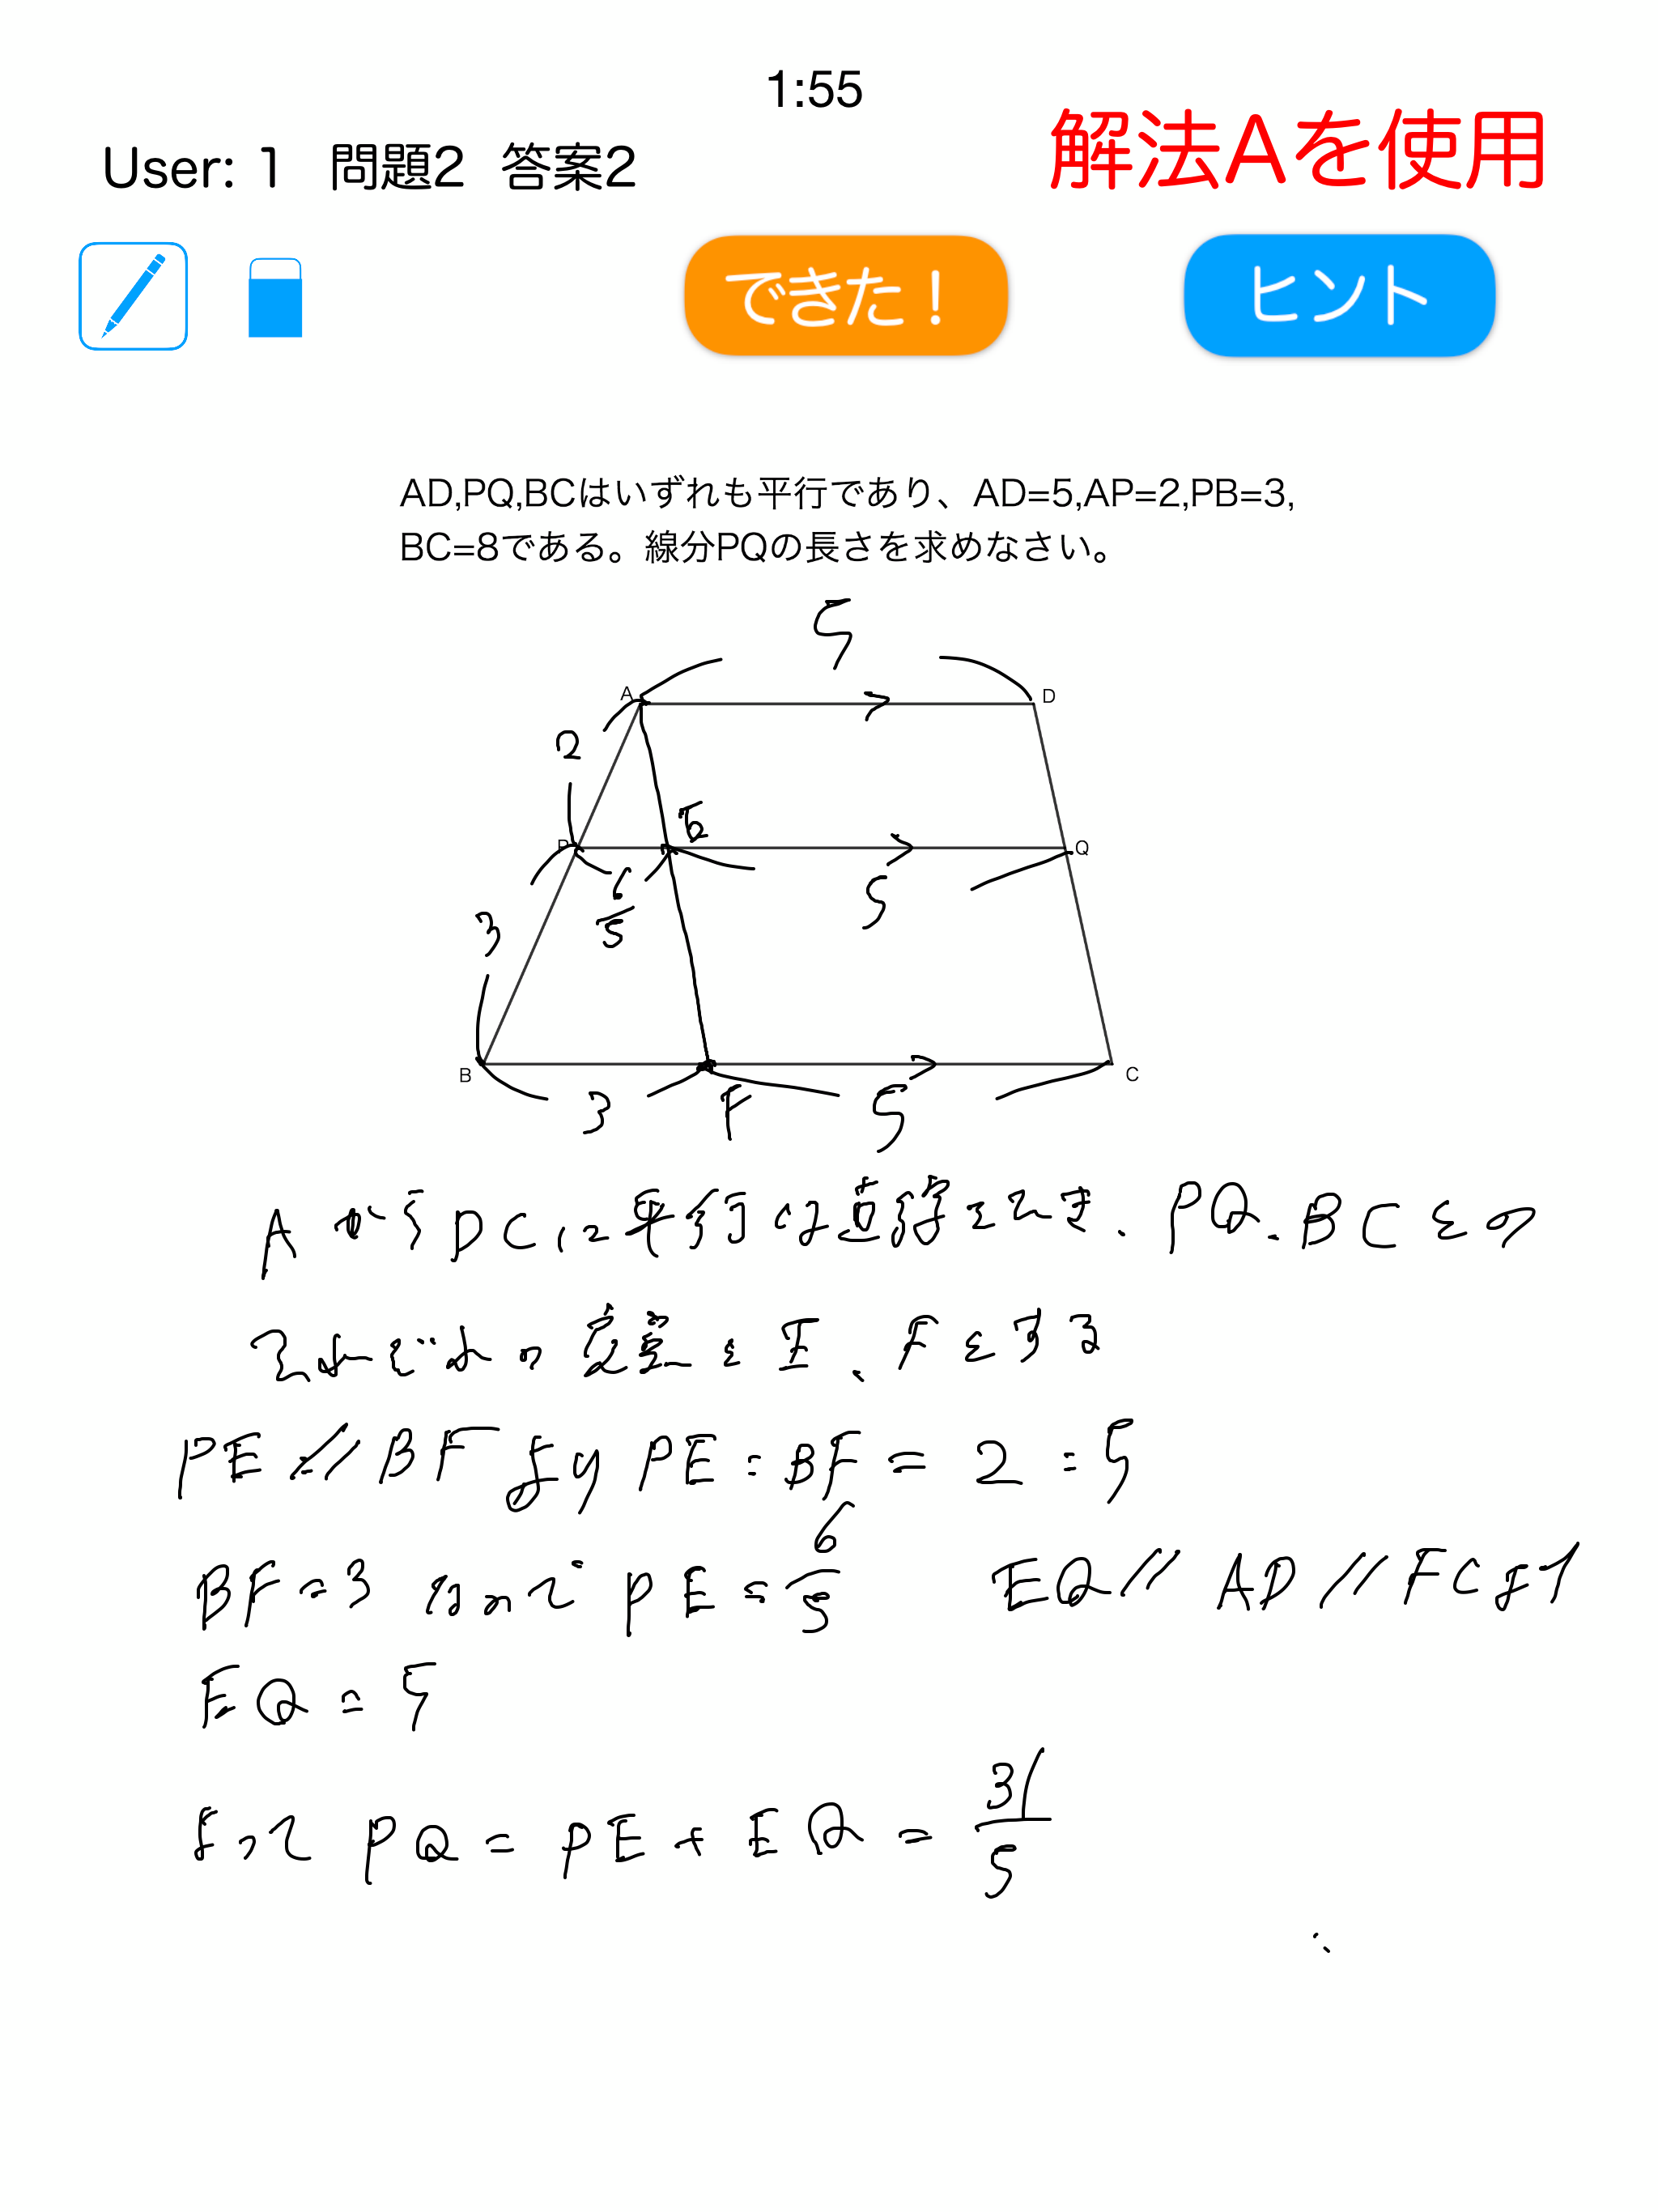 1:55
User: 1 問題2 答案2
解法Aを使用
できた！
ヒント
AD,PQ,BCはいずれも平行であり、AD=5,AP=2,PB=3,
BC=8である。線分PQの長さを求めなさい。
5
A
D
2
E
P
Q
6/5
5
3
B
C
3
F
5
AからDCに平行な直線をひき、PQ、BCとの
それぞれの交点をE、Fとする
PE//BFより PE:BF=2:5
BF=3なので PE=6/5 EQ//AD//FCより
EQ=5
よって PQ=PE+EQ=31/5